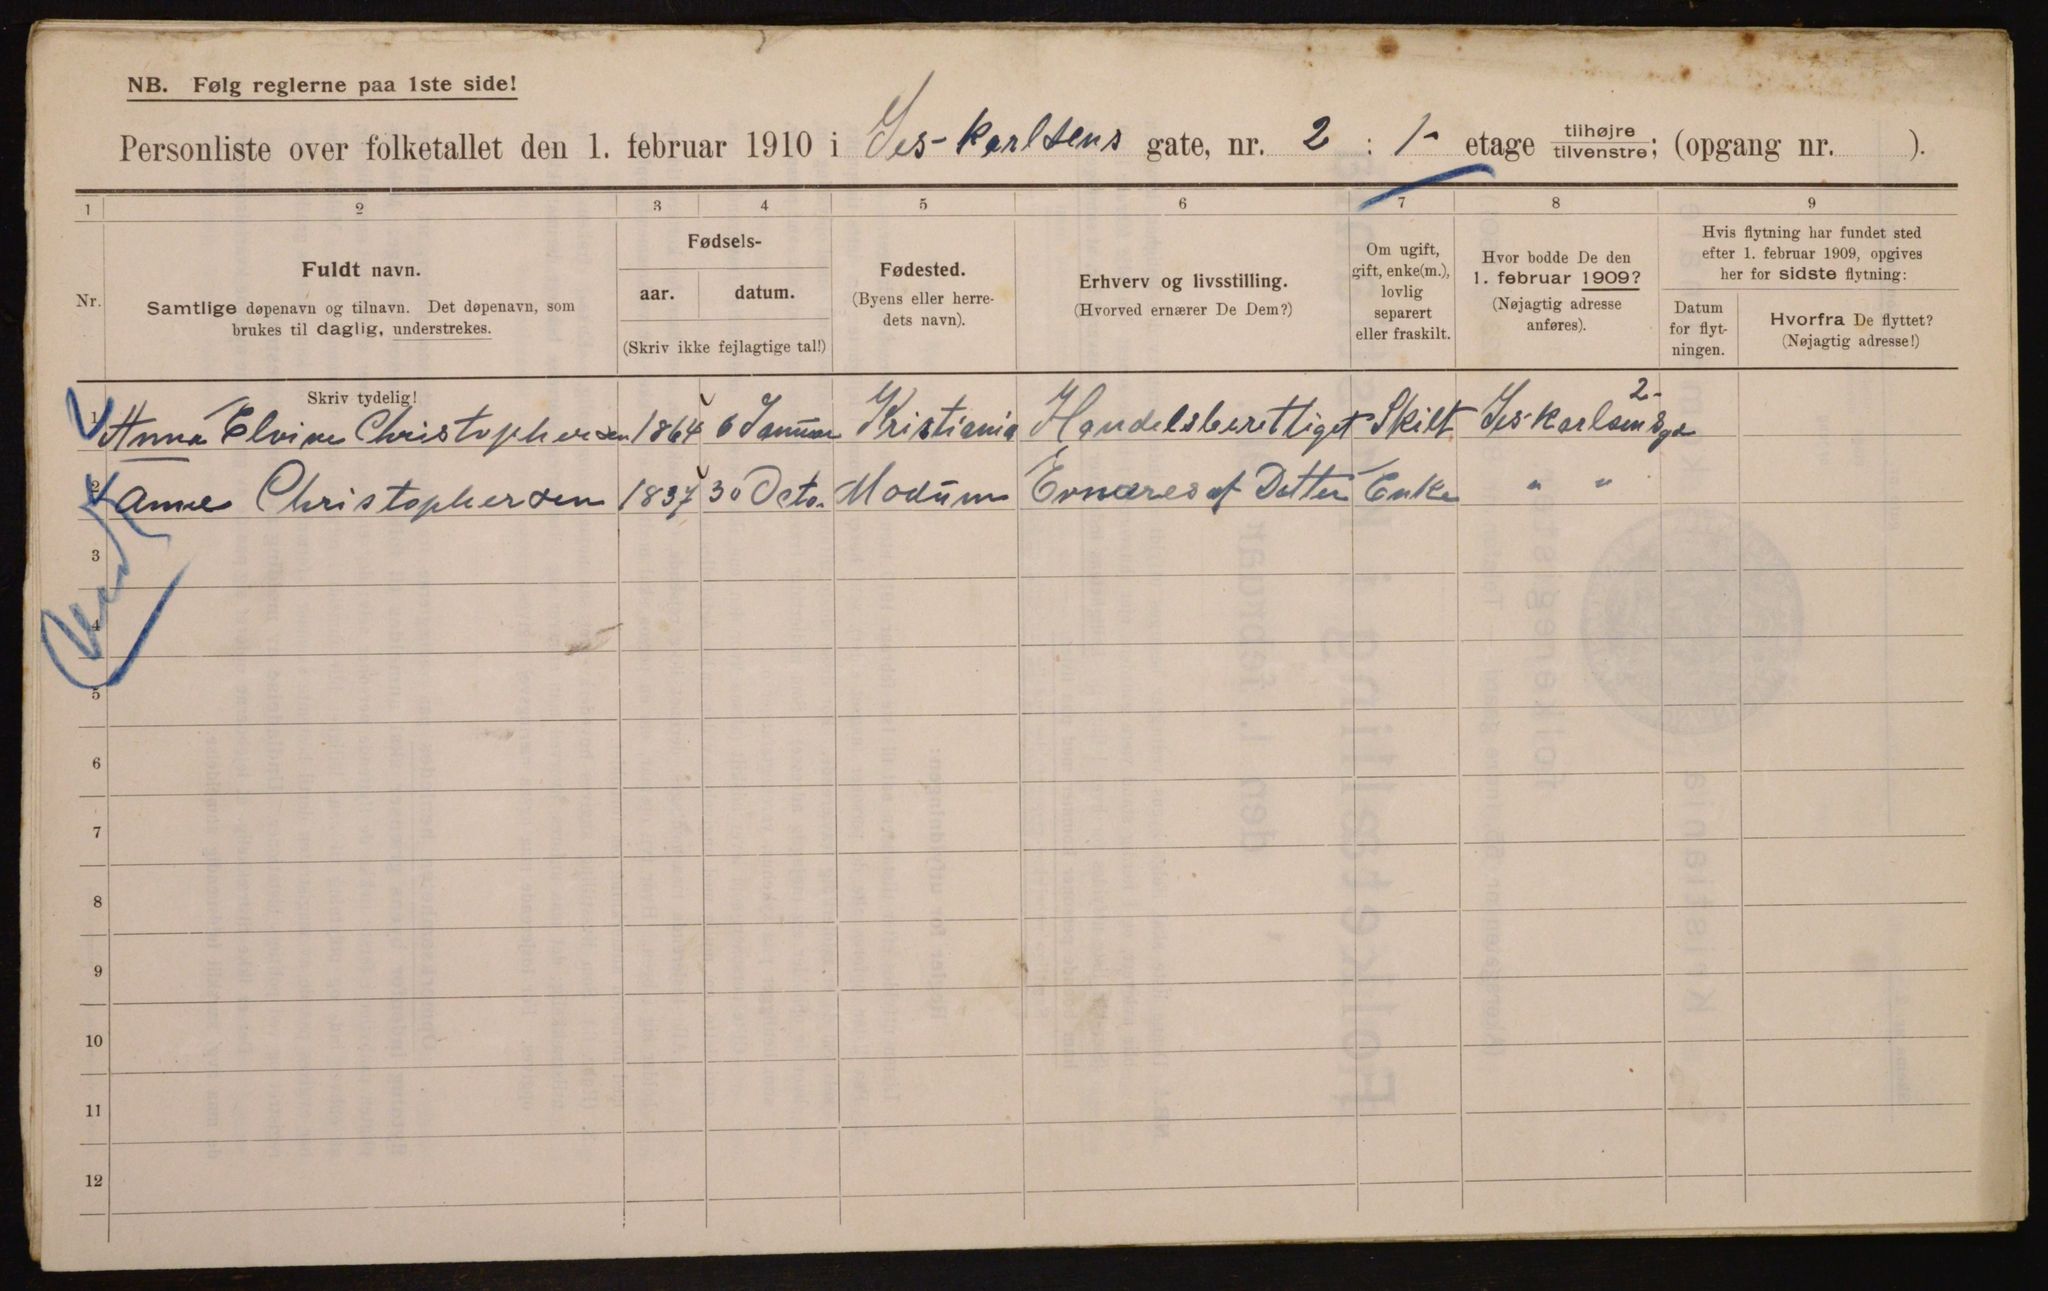 NB. Følg reglerne paa 1ste side!
Personliste over folketallet den 1. februar 1910 i Jes-Karlsens gate, nr. 2 : 1- etage tilhøjre tilvenstre; (opgang nr. ).
1 2 3 4 5 6 7 8 9
Nr.
Fuldt navn.
Samtlige døpenavn og tilnavn. Det døpenavn, som
brukes til daglig, understrekes.
Fødsels-
aar. datum.
(Skriv ikke fejlagtige tal!)
Fødested.
(Byens eller herre-
dets navn).
Erhverv og livsstilling.
(Hvorved ernærer De Dem?)
Om ugift,
gift, enke(m.),
lovlig
separert
eller fraskilt.
Hvor bodde De den
1. februar 1909?
(Nøjagtig adresse
anføres).
Hvis flytning har fundet sted
efter 1. februar 1909, opgives
her for sidste flytning:
Datum
for flyt-
ningen.
Hvorfra De flyttet?
(Nøjagtig adresse!)
Skriv tydelig!
1 Anna Elvine Christophersen 1864 6 Januar Kristiania Handelsberettiget Skilt Jes-Karlsensge 2-
2 Anne Christophersen 1837 30 Octo. Modum Ernæres af Datter Enke " "
3
4
5
6
7
8
9
10
11
12